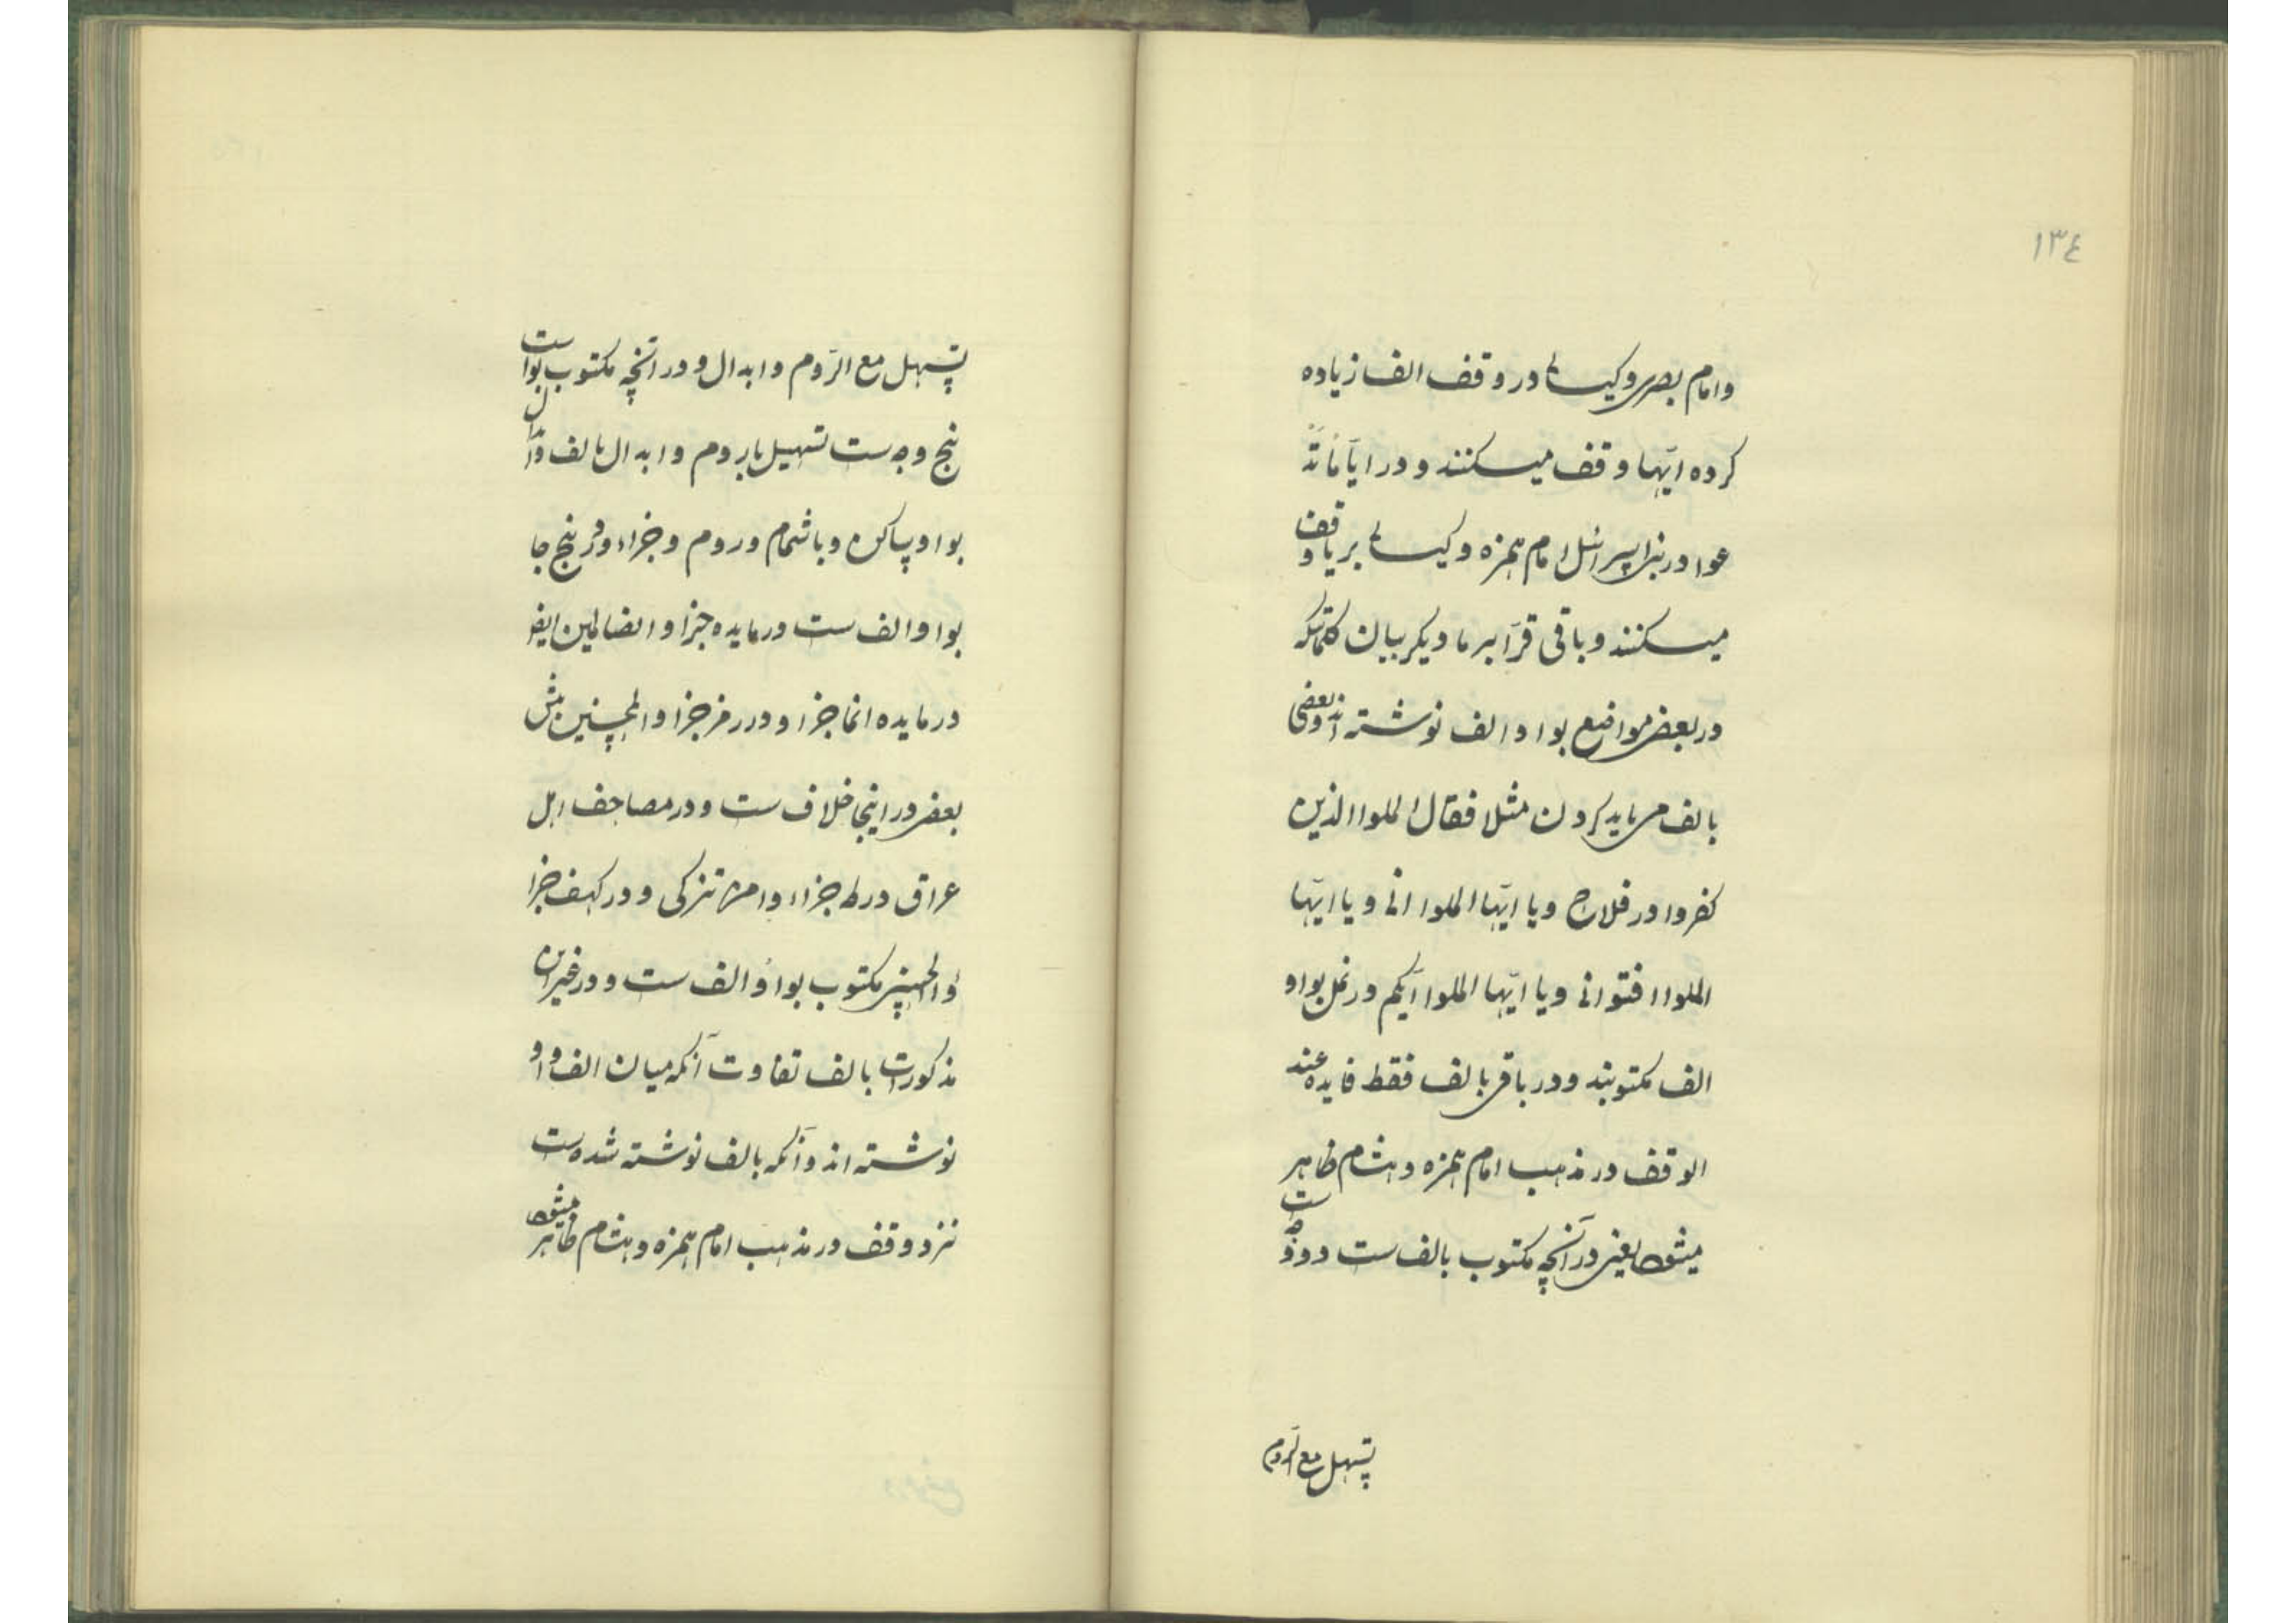 ١٣٤
وامام بصری وکیسائی در وقف الف زیاده
کرده ایّها وقف میکنند و در ایّاً مّا تد
عوا در بنی اسرائیل امام همزه وکیسائی بر یا وقف
میکنند و باقی قرّا بر ما دیکر بیان کلماتیکه
در بعضی مواضع بواو والف نوشته اند و بعضی
بالف می باید کردن مثلا فقال الملوا الذین
کفروا در فلاح ویا ایّها الملوا انی ویا ایّها
الملوا افتوانی ویا ایّها الملوا ایّکم در نمل بواو
الف مکتوبند و در باقی بالف فقط فایده عند
الوقف در مذهب امام همزه وهشام ظاهر
میشود یعنی در آنچه مکتوب بالف ست دو وجه ست
تسهیل مع الرّوم
تسهیل مع الرّوم وابدال و در آنچه مکتوب بواو است
پنج وجه ست تسهیل باروم وابدال بالف وابدال
بواو ساکن وباشمام وروم وجزاء در پنج جا
بواو الف ست در مایده جزاو الضالمین ایضو
در مایده انما جزاو ودر زمر جزاو المحسنین پیش
بعضی در اینجا خلاف ست ودر مصاحف اهل
عراق در طه جزاء وامن تزکی ودر کهف جزا
ؤالحسنی مکتوب بواو والف ست ودر غیر این
مذکورات بالف تفاوت آنکه میان الف و واو
نوشته اند و آنکه بالف نوشته شده ست
نزد وقف در مذهب امام همزه وهشام ظاهر میشود